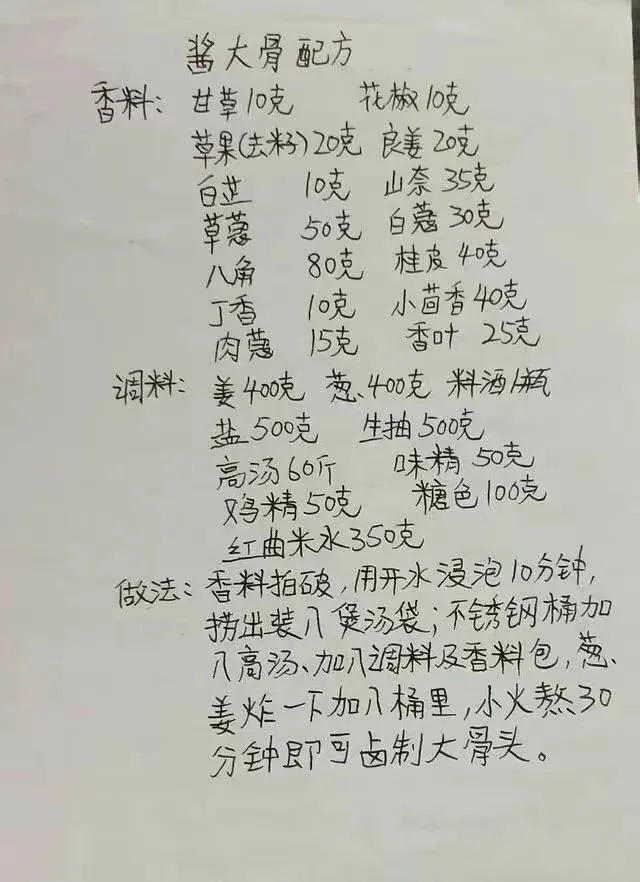 酱大骨配方
香料: 甘草10克 花椒10克
草果(去籽)20克 良姜20克
白芷 10克 山奈35克
草蔻 50克 白蔻30克
八角 80克 桂皮40克
丁香 10克 小茴香40克
肉蔻 15克 香叶 25克
调料: 姜400克 葱、400克 料酒1瓶
盐500克 生抽500克
高汤60斤 味精50克
鸡精50克 糖色100克
红曲米水350克
做法: 香料拍破,用开水浸泡10分钟,
捞出装八煲汤袋;不锈钢桶加
八高汤、加八调料及香料包,葱、
姜炸一下加八桶里,小火熬30
分钟即可卤制大骨头。